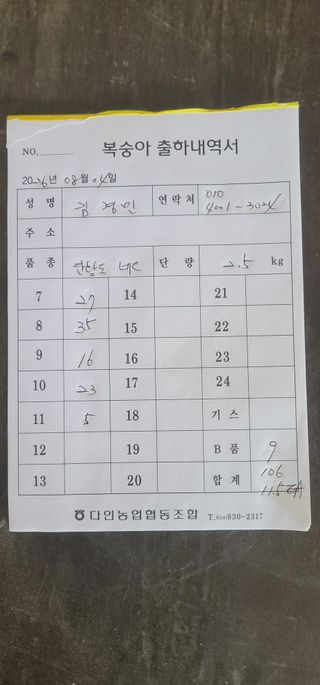 NO.
복숭아 출하내역서
2026년 08월 04일
성 명 김경민 연락처 010 4001-3024
주 소
품 종 단 량 2.5 kg
7 27 14 21
8 35 15 22
9 16 16 23
10 23 17 24
11 5 18 기 스
12 19 B 품 9
13 20 합 계 106
115
다인농업협동조합 T.(054)830-2317